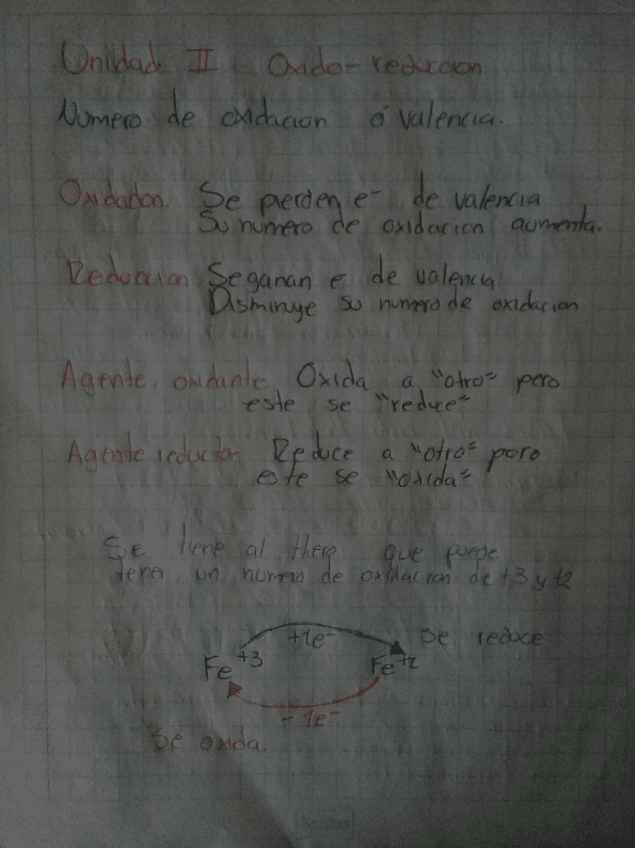 Unidad II Oxido-reduccion
Numero de oxidacion ó valencia.
Oxidacion. Se pierden e- de valencia
Su numero de oxidacion aumenta.
Reduccion Se ganan e- de valencia
Disminuye su numero de oxidacion
Agente oxidante Oxida a "otro" pero
este se "reduce"
Agente reductor Reduce a "otro" pero
este se "oxida"
Se tiene al que puede
tener un numero de oxidacion de +3 y +2
+1e- Se reduce
Fe+3 Fe+2
-1e-
Se oxida.